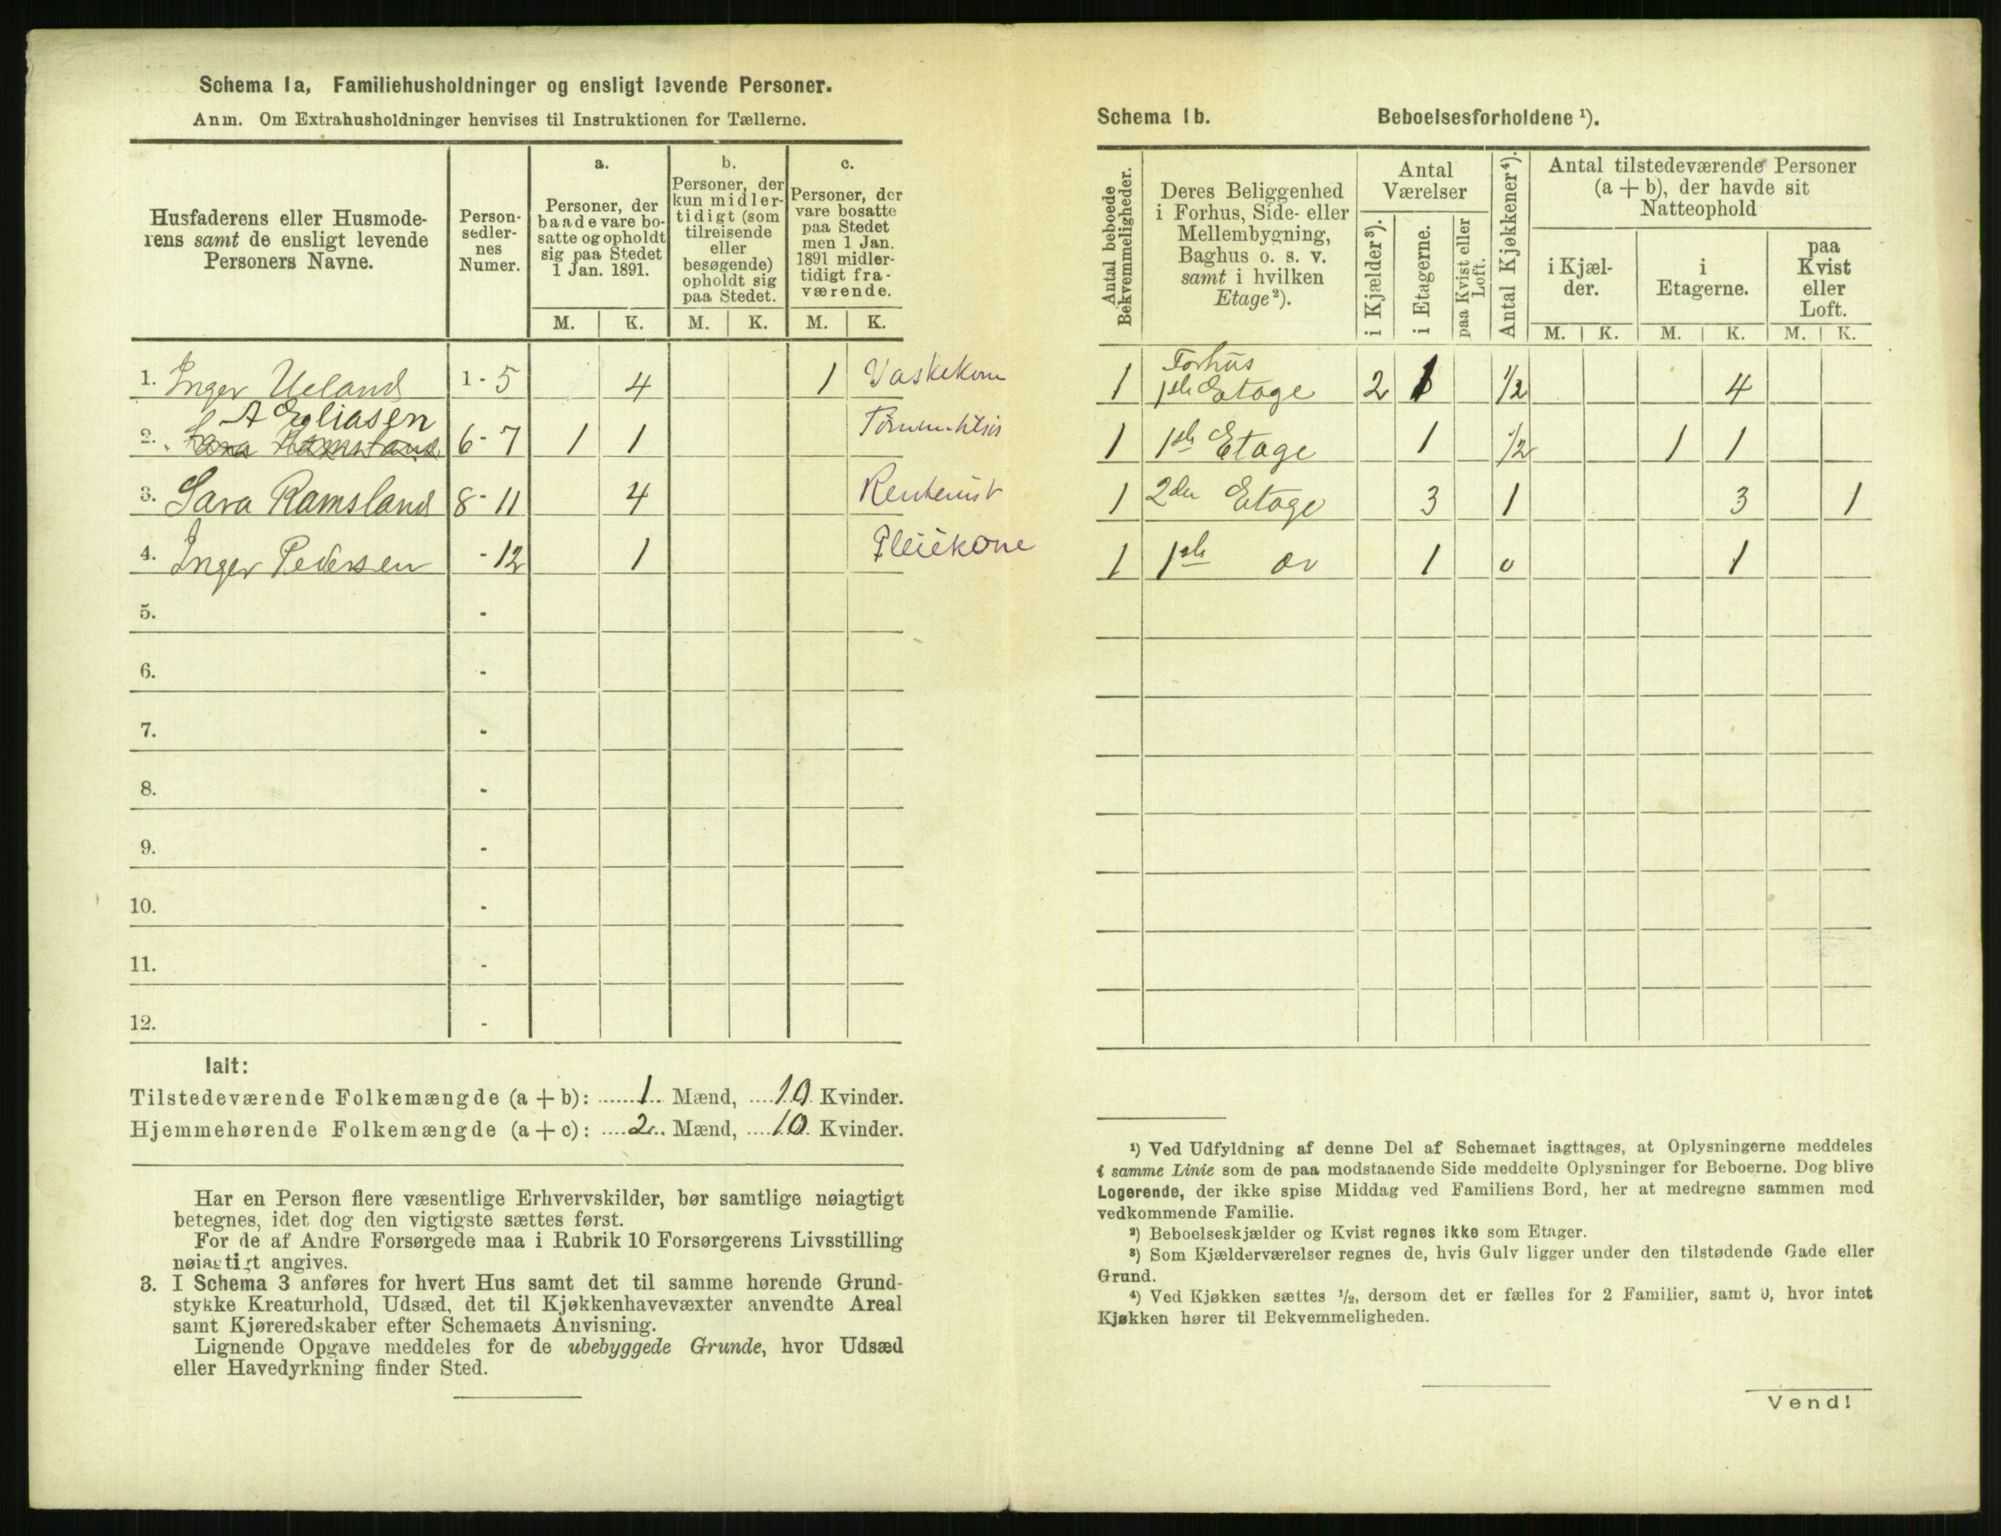 Schema 1a, Familiehusholdninger og ensligt levende Personer.
Anm. Om Extrahusholdninger henvises til Instruktionen for Tællerne.
Husfaderens eller Husmode-
rens samt de ensligt levende
Personers Navne.
Person-
sedler-
nes
Numer.
a.
Personer, der
baade vare bo-
satte og opholdt
sig paa Stedet
1 Jan. 1891.
b.
Personer, der
kun midler-
tidigt (som
tilreisende
eller
besøgende)
opholdt sig
paa Stedet.
c.
Personer, der
vare bosatte
paa Stedet
men 1 Jan.
1891 midler-
tidigt fra-
værende.
M. K. M. K. M. K.
1. Inger Ueland 1 - 5 4 1 Vaskekone
A Eliasen
2. Sara Ramsland 6 - 7 1 1
3. Sara Ramsland 8 - 11 4 Rentenist
4. Inger Pedersen - 12 1 Pleiekone
5. -
6. -
7. -
8. -
9. -
10. -
11. -
12. -
Ialt:
Tilstedeværende Folkemængde (a + b): 1 Mænd, 10 Kvinder.
Hjemmehørende Folkemængde (a + c): 2 Mænd, 10 Kvinder.
Har en Person flere væsentlige Erhvervskilder, bør samtlige nøiagtigt
betegnes, idet dog den vigtigste sættes først.
For de af Andre Forsørgede maa i Rubrik 10 Forsørgerens Livsstilling
nøiagtigt angives.
3. I Schema 3 anføres for hvert Hus samt det til samme hørende Grund-
stykke Kreaturhold, Udsæd, det til Kjøkkenhavevæxter anvendte Areal
samt Kjøreredskaber efter Schemaets Anvisning.
Lignende Opgave meddeles for de ubebyggede Grunde, hvor Udsæd
eller Havedyrkning finder Sted.
Schema 1b. Beboelsesforholdene ¹).
Antal beboede
Bekvemmeligheder.
Deres Beliggenhed
i Forhus, Side- eller
Mellembygning,
Baghus o. s. v.
samt i hvilken
Etage²).
Antal
Værelser
i Kjælder³).
i Etagerne.
paa Kvist eller
Loft.
Antal Kjøkkener⁴).
Antal tilstedeværende Personer
(a + b), der havde sit
Natteophold
i Kjæl-
der.
i
Etagerne.
paa
Kvist
eller
Loft.
M. K. M. K. M. K.
Forhus
1 1ste Etage 2 1 1/2 4
1 1ste Etage 1 1/2 1 1
1 2den Etage 3 1 3 1
1 1ste 1 0 1
¹) Ved Udfyldning af denne Del af Schemaet iagttages, at Oplysningerne meddeles
i samme Linie som de paa modstaaende Side meddelte Oplysninger for Beboerne. Dog blive
Logerende, der ikke spise Middag ved Familiens Bord, her at medregne sammen med
vedkommende Familie.
²) Beboelseskjælder og Kvist regnes ikke som Etager.
³) Som Kjælderværelser regnes de, hvis Gulv ligger under den tilstødende Gade eller
Grund.
⁴) Ved Kjøkken sættes ¹/₂, dersom det er fælles for 2 Familier, samt 0, hvor intet
Kjøkken hører til Bekvemmeligheden.
Vend!